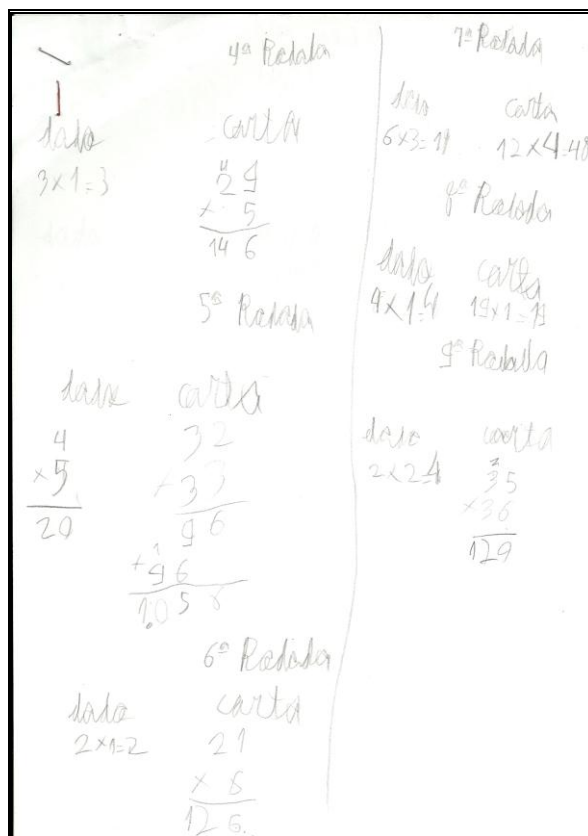 4ª Rodada
dado carta
3x1=3
4
29
x 5
146
5ª Rodada
dado carta
4
x5
20
32
x33
96
1
+96
1.056
6ª Rodada
dado carta
2x1=2
21
x 6
126
7ª Rodada
dado carta
6x3=18 12x4=48
8ª Rodada
dado carta
4x1=4 19x1=19
9ª Rodada
dado carta
2x2=4
35
x36
129